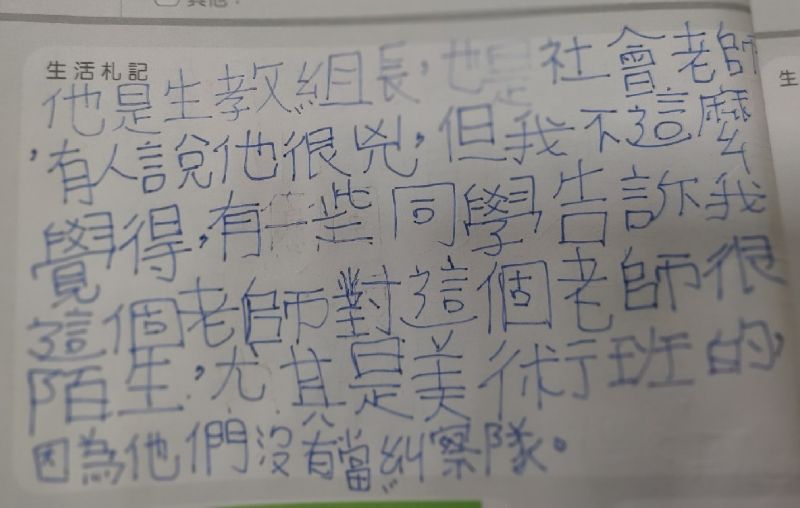 其他：
生活札記
他是生教組長，也是社會老師
，有人說他很兇，但我不這麼
覺得，有一些同學告訴我
這個老師對這個老師很
陌生，尤其是美術班的，
因為他們沒有當糾察隊。
生